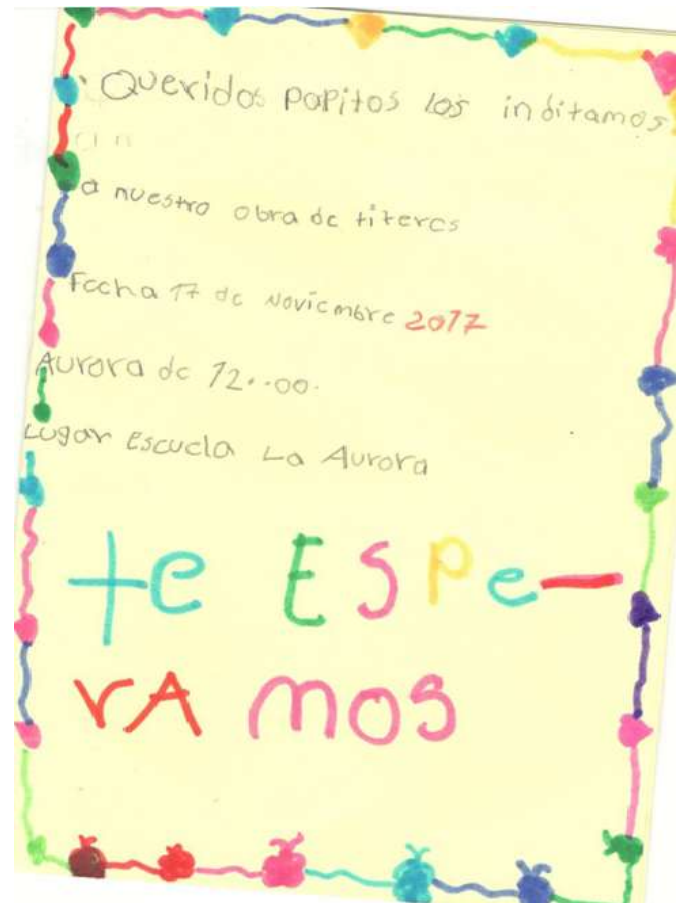 Queridos papitos los inbitamos
a nuestro obra de titeres
Fecha 17 de Noviembre 2017
Aurora de 12:00.
Lugar Escuela La Aurora
te ESPe-
rAmos